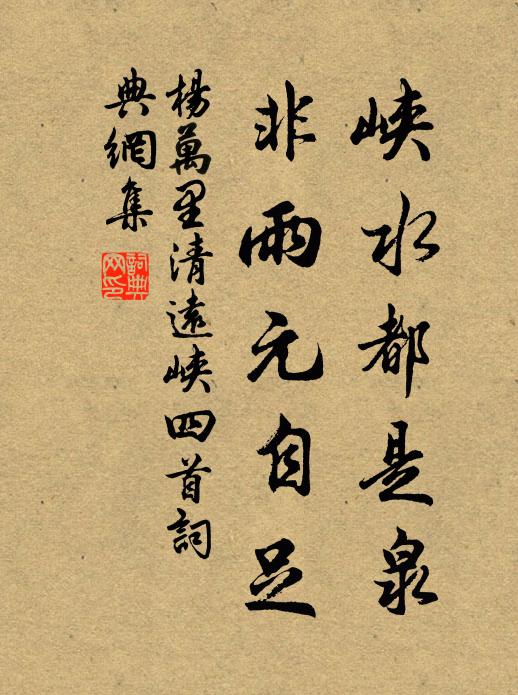 峽水都是泉
非雨元自足
楊萬里清遠峽四首詞
典網集
詞典
网印